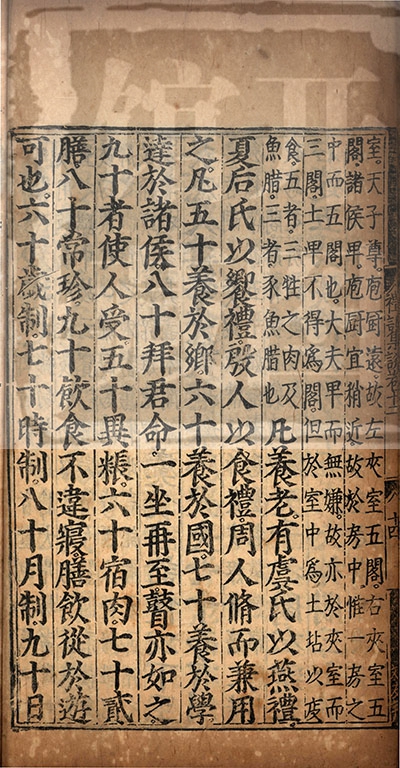 室。天子尊。庖厨遠。故左夾室五閣。右夾室五
閣。諸侯卑。庖厨宜稍近。故於房中。惟一房之
中而五閣也。大夫卑而無嫌。故亦於夾室而
三閣。士卑不得爲閣。但於室中爲土坫以庋
食。五者。三牲之肉及
魚腊。三者。豕魚腊也
凡養老。有虞氏以燕禮。
夏后氏以饗禮。殷人以食禮。周人脩而兼用
之。凡五十養於鄉。六十養於國。七十養於學。
達於諸侯。八十拜君命。一坐再至。瞽亦如之。
九十者使人受。五十異粻。六十宿肉。七十貳
膳。八十常珍。九十飲食不違寢。膳飲從於遊
可也。六十歲制。七十時制。八十月制。九十日